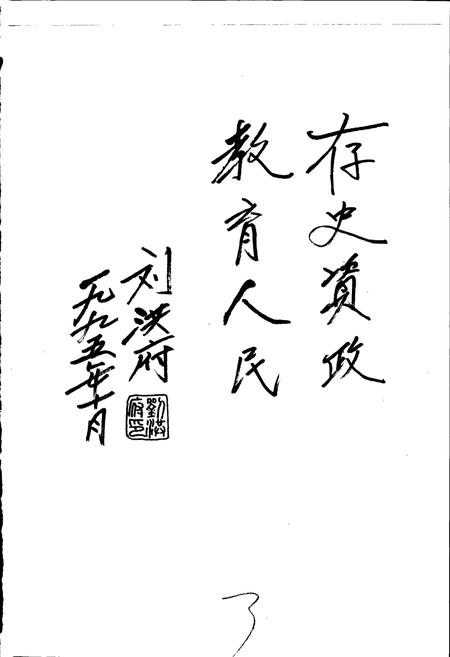 存史资政
教育人民
刘洪府
一九九五年十月
劉洪府印
3